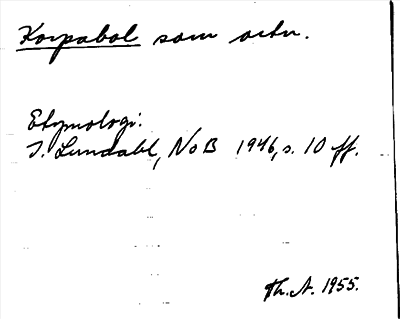 Korpabol som ortn.
Etymologi:
I. Lundahl, NoB 1946, s. 10 ff.
Th. A. 1955.